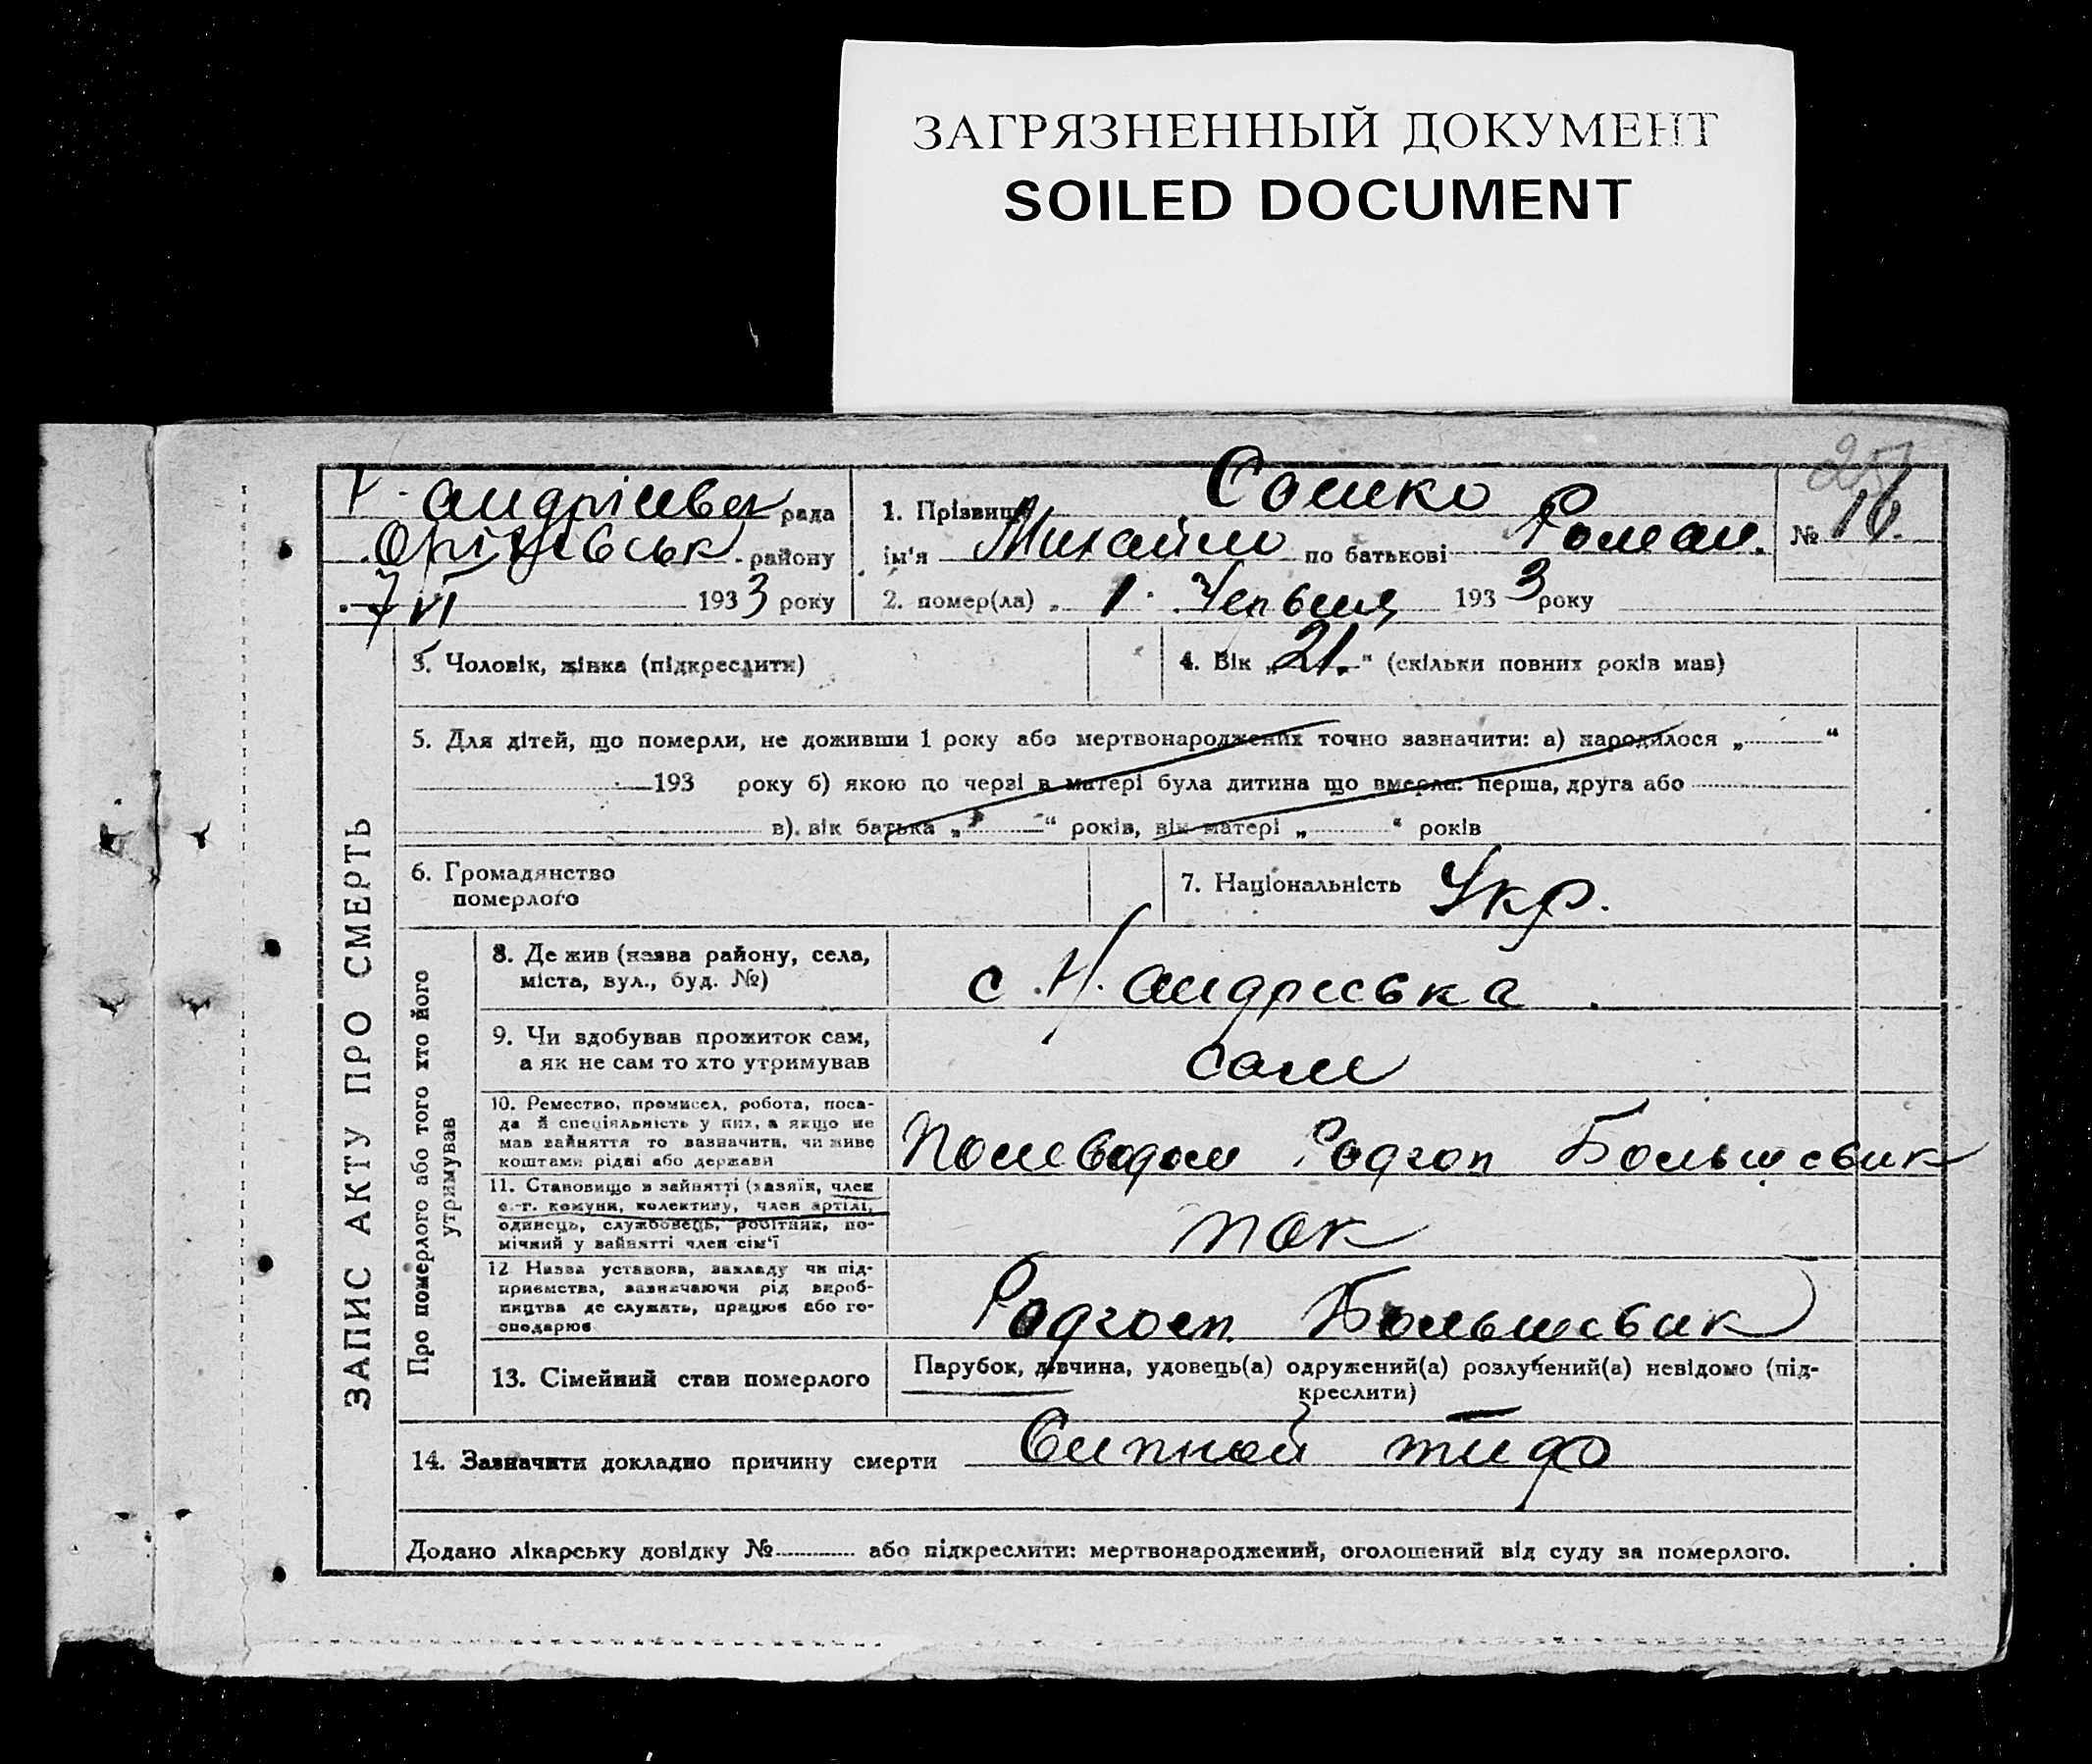 ЗАГРЯЗНЕННЫЙ ДОКУМЕНТ
SOILED DOCUMENT
25
ЗАПИС АКТУ ПРО СМЕРТЬ
рада
Оріхівськ. району
7 VI 1933 року
1. Прізвище Сошко
ім'я Михайло по батькові Роман.
№ 16.
2. помер(ла) „ 1. Червня 1933 року
3. Чоловік, жінка (підкреслити)
4. Вік „21.“ (скільки повних років мав)
5. Для дітей, що померли, не доживши 1 року або мертвонароджених точно зазначити: а) народилося „ “
193 року б) якою по черзі в матері була дитина що вмерла: перша, друга або
в). вік батька „ “ років, вік матері „ “ років
6. Громадянство
померлого
7. Національність Укр.
Про померлого або того хто його
утримував
8. Де жив (назва району, села,
міста, вул., буд. №)
с. Н. Андріевка
9. Чи здобував прожиток сам,
а як не сам то хто утримував
сам
10. Ремество, промисел, робота, поса-
да й спеціяльність у них, а якщо не
мав зайняття то зазначити, чи живе
коштами рідні або держави
Полеводом Радгоп Большевик
11. Становище в зайнятті (хазяїн, член
с.-г. комуни, колективу, член артілі,
одинець, службовець, робітник, по-
мічний у зайнятті член сім'ї
12 Назва установи, закладу чи під-
приємства, зазначаючи рід вироб-
ництва де служить, працює або го-
сподарює
Радгосп Большевик
13. Сімейний стан померлого
Парубок, дівчина, удовець(а) одружений(а) розлучений(а) невідомо (під-
креслити)
14. Зазначити докладно причину смерти Сипной тиф
Додано лікарську довідку № або підкреслити: мертвонароджений, оголошений від суду за померлого.